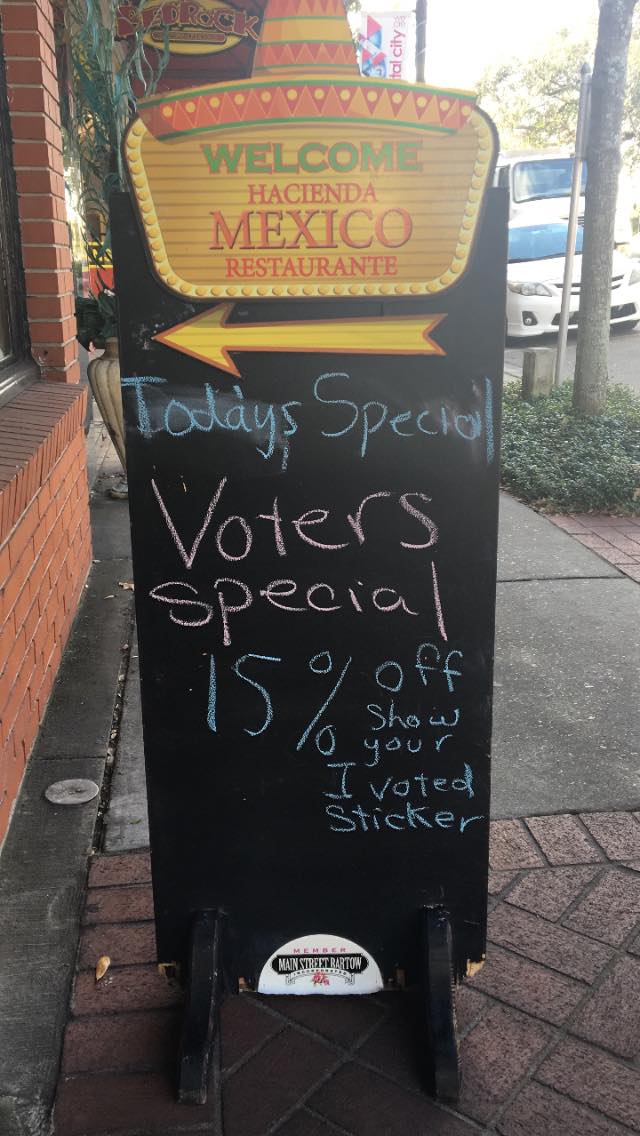 BEDROCK
tal city
WELCOME
HACIENDA
MEXICO
RESTAURANTE
Todays Special
Voters
special
15% off
Show
your
I voted
Sticker
MEMBER
MAIN STREET BARTOW
INCORPORATED